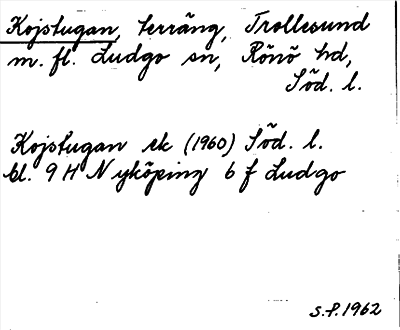 Kojstugan, terräng, Trollesund
m. fl. Ludgo sn, Rönö hd,
Söd. l.
Kojstugan ek (1960) Söd. l.
bl. 9 H Nyköping 6 f Ludgo
S.P. 1962